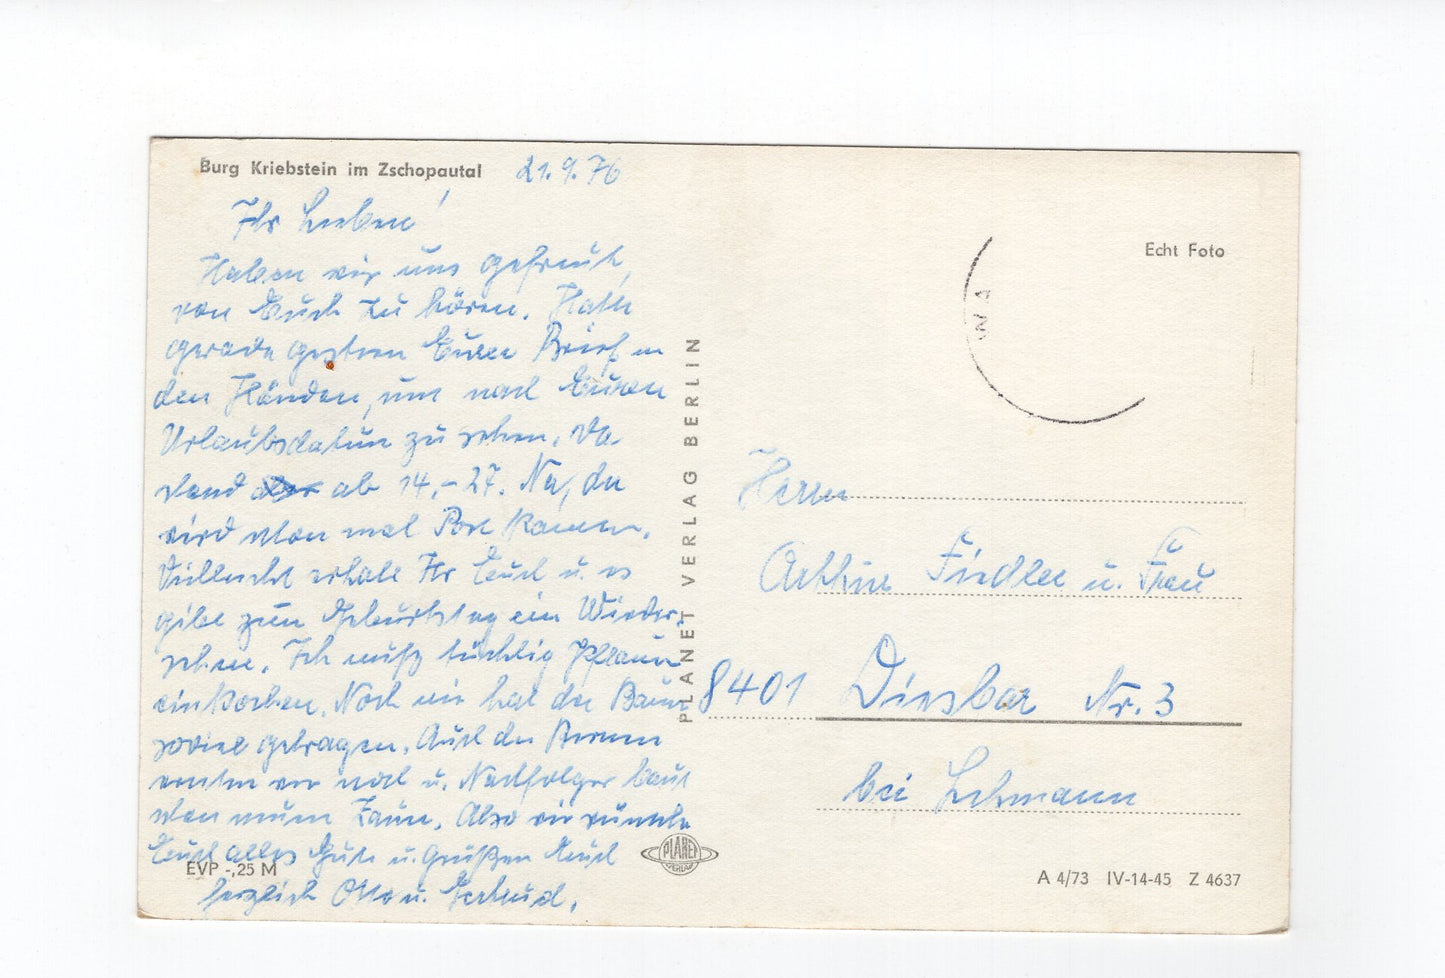 Burg Kriebstein im Zschopautal 21.9.76
Ihr Lieben!
Haben wir uns gefreut,
von Euch zu hören. Hatte
gerade gestern Euren Brief in
den Händen, um nach Euren
Urlaubsdatum zu sehen. Da
stand ab 14.-27. Na, da
wird schon mal Post kommen.
Vielleicht erholt Ihr Euch u. es
gibt zum Geburtstag ein Wieder-
sehen. Ich muß tüchtig Pflaumen
einkochen. Noch nie hat der Baum
soviel getragen. Auch die Birnen
ernten wir noch u. Nachfolger baut
den neuen Zaun. Also wir wünschen
Euch alles Gute u. grüßen Euch
herzlich Otto u. Gertrud.
EVP -,25 M
PLANET VERLAG BERLIN
PLANET
VERLAG
Echt Foto
WA
Herrn
Arthur Fiedler u. Frau
8401 Diesbar Nr. 3
bei Lehmann
A 4/73 IV-14-45 Z 4637